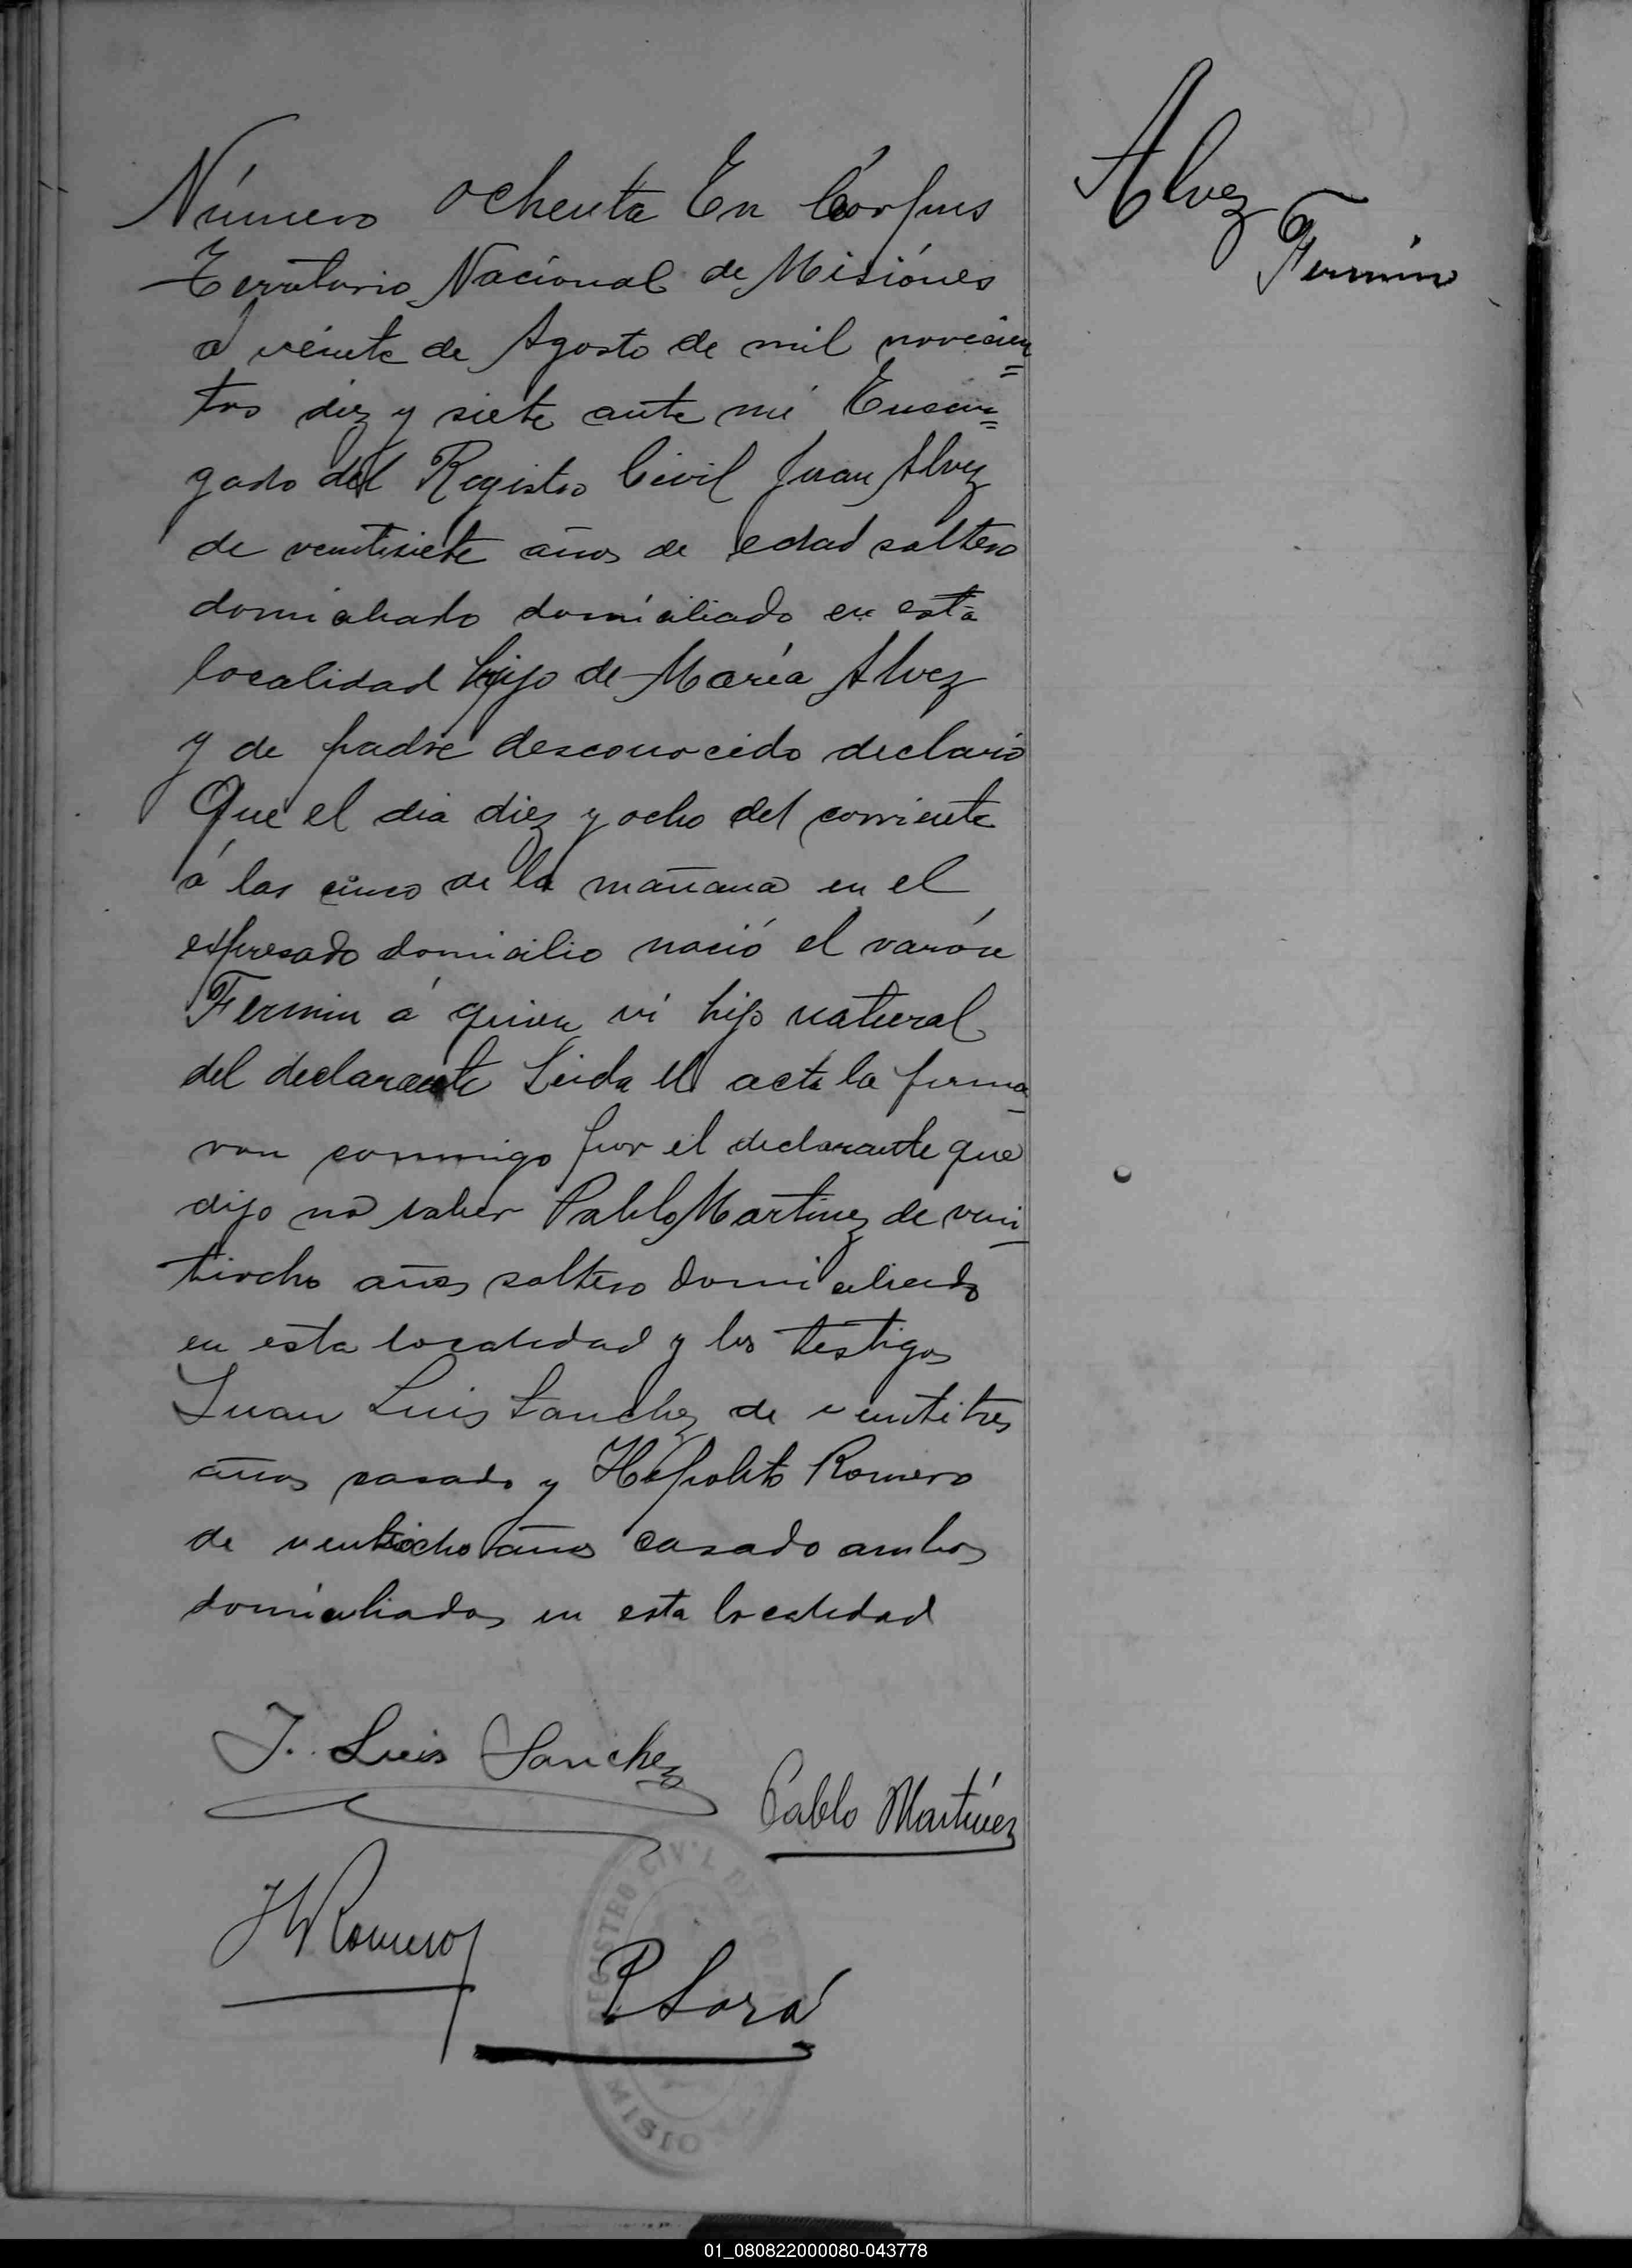 Número ochenta En Córpus
Territorio Nacional de Misiónes
a veinte de Agosto de mil novecien
tos diez y siete ante mi Encar
gado del Registro Civil Juan Alvez
de ventisiete años de edad soltero
domiciliado domiciliado en esta
localidad hijo de María Alvez
y de padre desconocido declaró
Que el dia diez y ocho del corriente
á las cinco de la mañana en el
espresado domicilio nació el varón
Fermin á quien vi hijo natural
del declarante Leida el acta la firma
ron conmigo por el declarante que
dijo no saber Pablo Martinez de vein
tiocho años soltero domiciliado
en esta localidad y los testigos
Juan Luis Sanchez de ventitres
años casado y Hipolito Romero
de ventiocho años casado ambos
domiciliados en esta localidad
J. Luis Sanchez
Pablo Martínez
H Romero
P Lora
Alvez
Fermin
REGISTRO CIVIL DE
MISIO
01_080822000080-043778